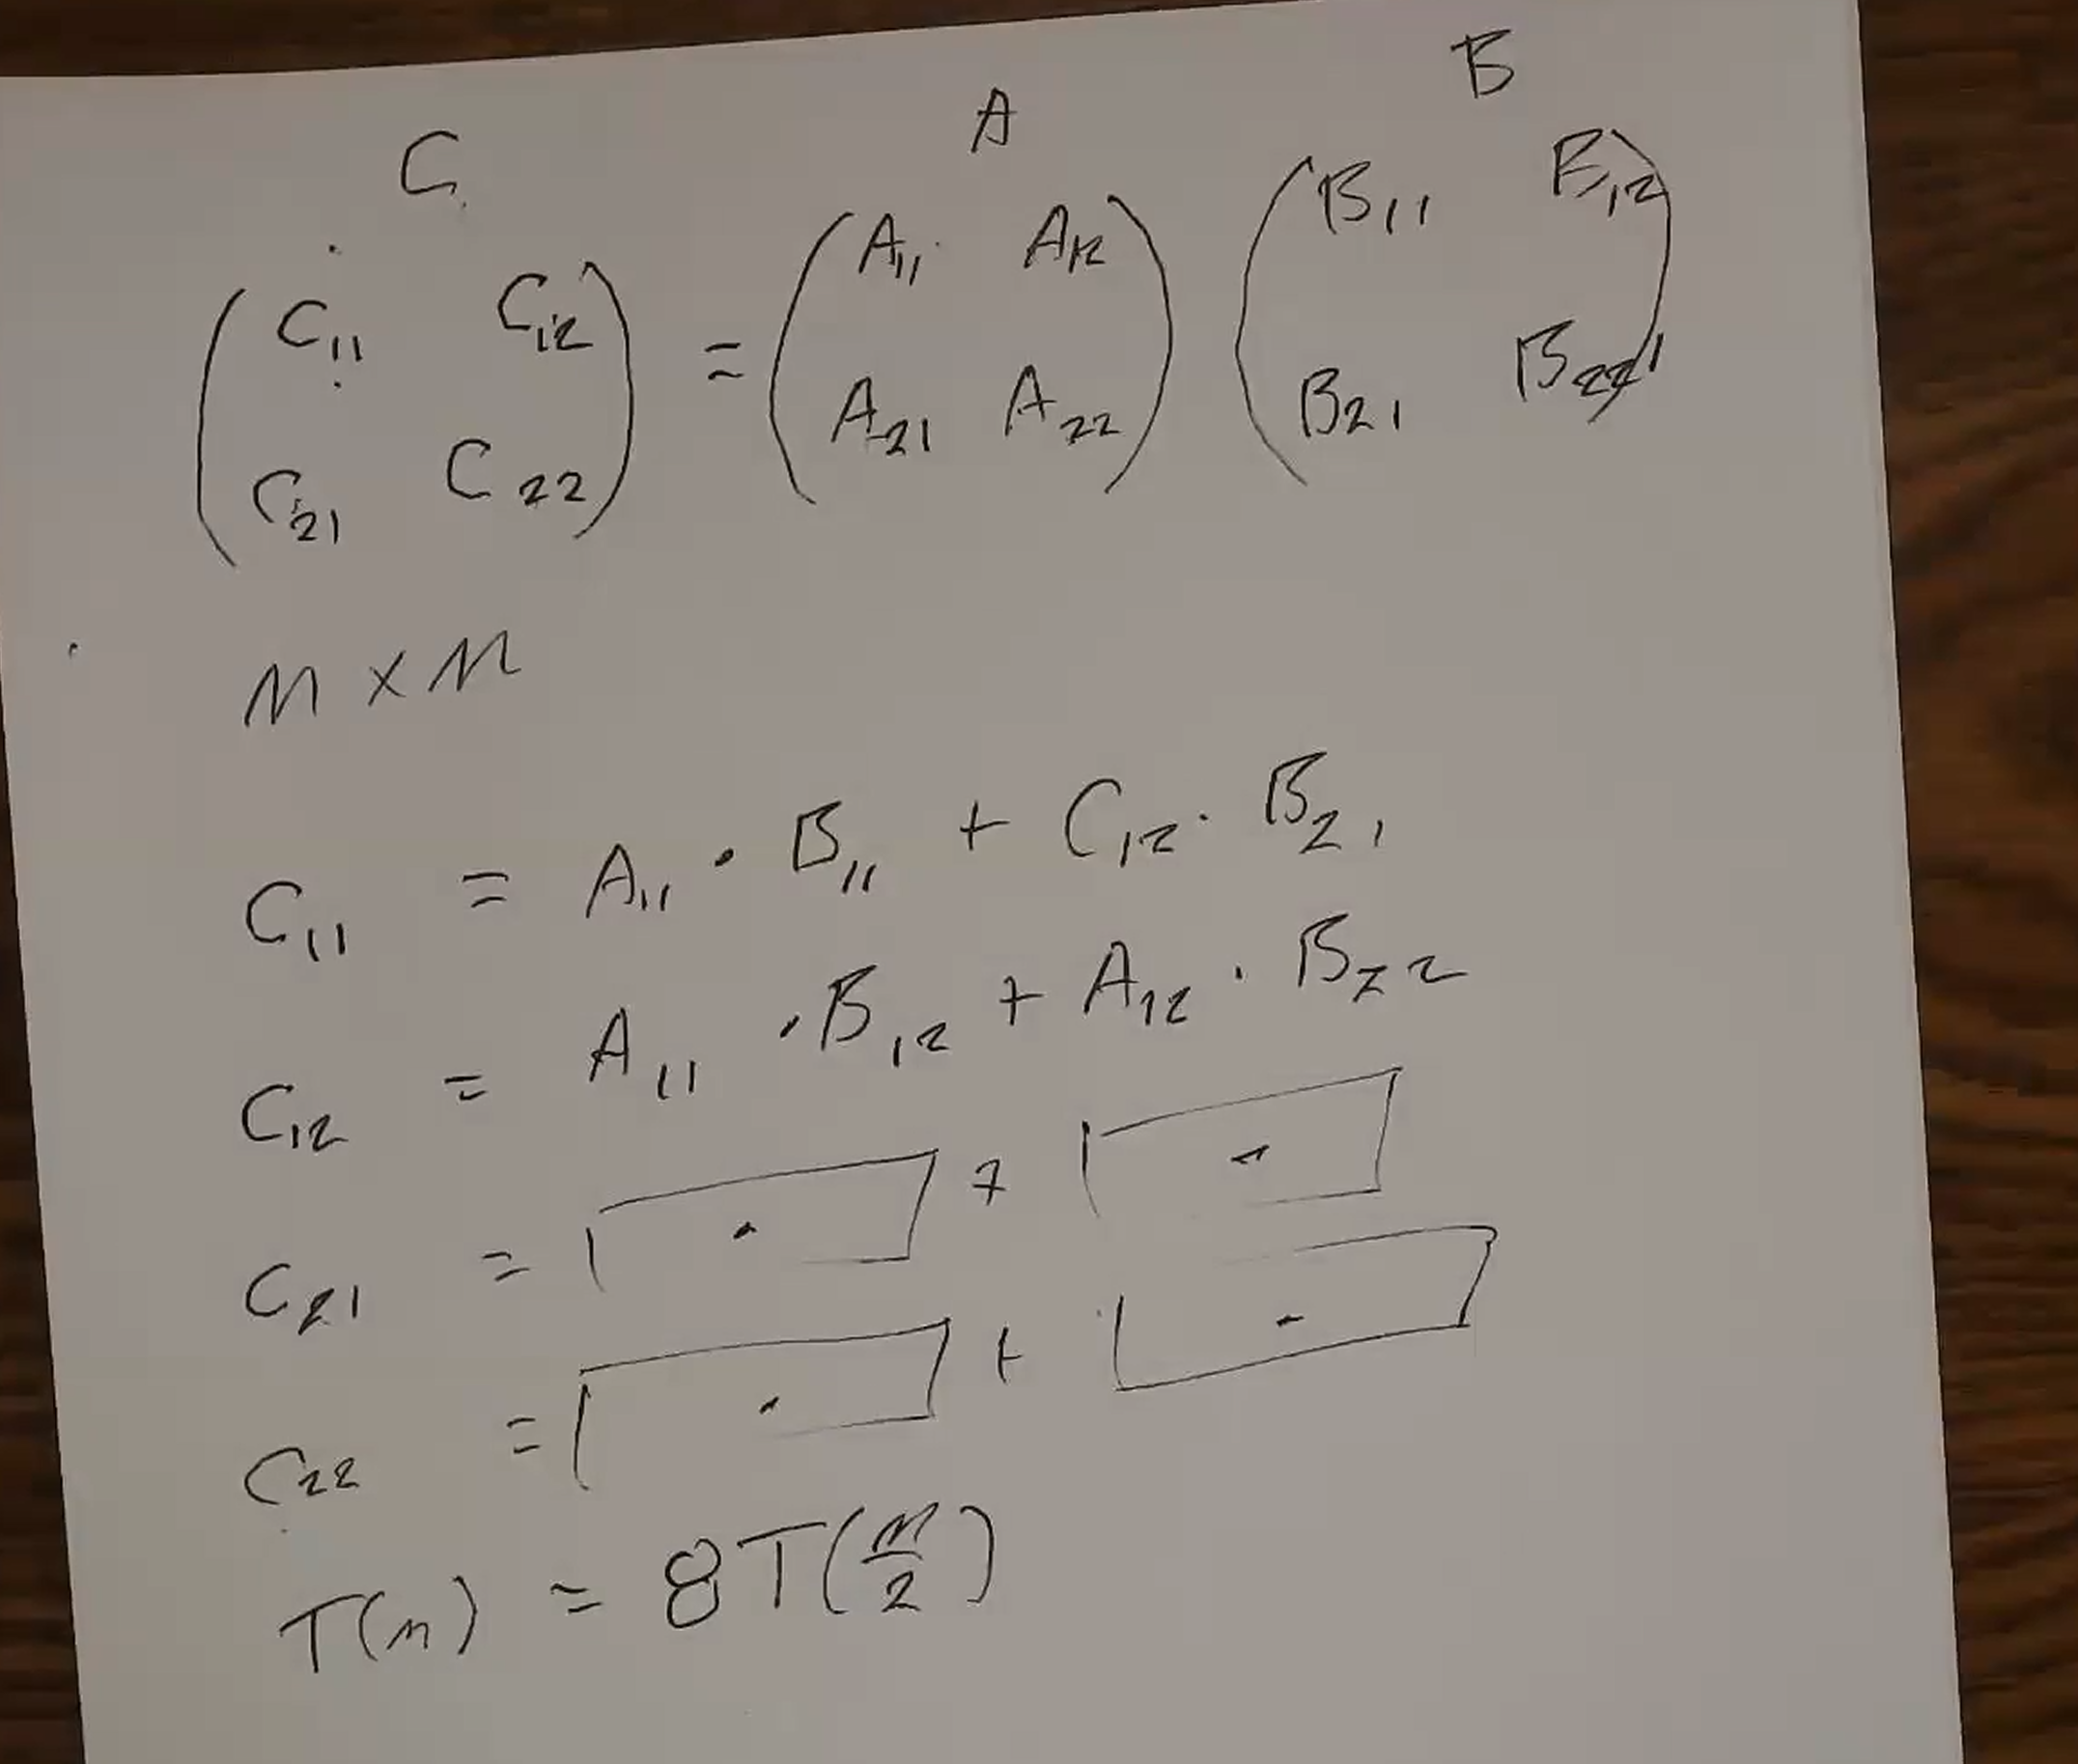 C A B
( C₁₁ C₁₂ ) = ( A₁₁ A₁₂ ) ( B₁₁ B₁₂ )
( C₂₁ C₂₂ ) ( A₂₁ A₂₂ ) ( B₂₁ B₂₂ )
n × n
C₁₁ = A₁₁ · B₁₁ + C₁₂ · B₂₁
C₁₂ = A₁₁ · B₁₂ + A₁₂ · B₂₂
C₂₁ = · + ·
C₂₂ = · + ·
T(n) = 8T(n/2)